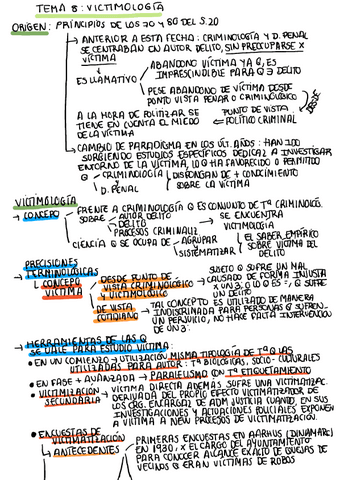 TEMA 8: VICTIMOLOGÍA
ORIGEN: PRINCIPIOS DE LOS 70 Y 80 DEL S.20
→ ANTERIOR A ESTA FECHA: CRIMINOLOGÍA Y D. PENAL
SE CENTRABAN EN AUTOR DELITO, SIN PREOCUPARSE X
VÍCTIMA
→ ES LLAMATIVO
ABANDONO VÍCTIMA YA Q, ES
IMPRESCINDIBLE PARA Q ∃ DELITO
PESE ABANDONO DE VÍCTIMA DESDE
PUNTO VISTA PENAL O CRIMINOLÓGICO
A LA HORA DE POLITIZAR SE
TIENE EN CUENTA EL MIEDO
DE LA VÍCTIMA
PUNTO DE VISTA
POLÍTICO CRIMINAL
DESDE
→ CAMBIO DE PARADIGMA EN LOS ÚLT. AÑOS: HAN IDO
SURGIENDO ESTUDIOS ESPECÍFICOS DEDICAZ A INVESTIGAR
ENTORNO DE LA VÍCTIMA, LO Q HA FAVORECIDO O PERMITIDO
Q → CRIMINOLOGÍA
D. PENAL
DISPONGAN DE + CONOCIMIENTO
SOBRE LA VÍCTIMA
VICTIMOLOGÍA
→ CONCEPTO
→ FRENTE A CRIMINOLOGÍA Q ES CONJUNTO DE Tª CRIMINOLÓG.
SOBRE
AUTOR DELITO
DELITO
PROCESOS CRIMINALIZ
SE ENCUENTRA
VICTIMOLOGÍA
→ CIENCIA Q SE OCUPA DE
AGRUPAR
SISTEMATIZAR
EL SABER EMPÍRICO
SOBRE VÍCTIMA DEL
DELITO
PRECISIONES
TERMINOLÓGICAS
CONCEPTO
VÍCTIMA
DESDE PUNTO DE
VISTA CRIMINOLÓGICO
Y VICTIMOLÓGICO
SUJETO Q SUFRE UN MAL
CAUSADO DE FORMA INJUSTA
X UN 3, O LO Q ES =, Q SUFRE
UN DELITO
DE VISTA
COTIDIANO
TAL CONCEPTO ES UTILIZADO DE MANERA
INDISCRIMINADA PARA PERSONAS Q SUFREN
UN PERJUICIO, NO HACE FALTA INTERVENCIÓN
DE UN 3
HERRAMIENTAS DE LAS Q
SE VALE PARA ESTUDIO VÍCTIMA:
• EN UN COMIENZO → UTILIZACIÓN MISMA TIPOLOGÍA DE Tª Q LAS
UTILIZADAS PARA AUTOR: Tª BIOLÓGICAS, SOCIO-CULTURALES
• EN FASE + AVANZADA → PARALELISMO CON Tª ETIQUETAMIENTO
• VICTIMIZACIÓN
SECUNDARIA
→ VÍCTIMA DIRECTA ADEMÁS SUFRE UNA VICTIMIZAC.
DERIVADA DEL PROPIO EFECTO VICTIMIZADOR DE
LOS ORG ENCARGZ DE ADM JUSTICIA CUANDO, EN SUS
INVESTIGACIONES Y ACTUACIONES POLICIALES EXPONEN
A VÍCTIMA A NUEVO PROCESOS DE VICTIMIZACIÓN.
• ENCUESTAS DE
VICTIMIZACIÓN
→ ANTECEDENTES
PRIMERAS ENCUESTAS EN AARHUS (DINAMARC)
EN 1930, X EL CARGO DEL AYUNTAMIENTO
PARA CONOCER ALCANCE EXACTO DE QUEJAS DE
VECINOS Q ERAN VÍCTIMAS DE ROBOS